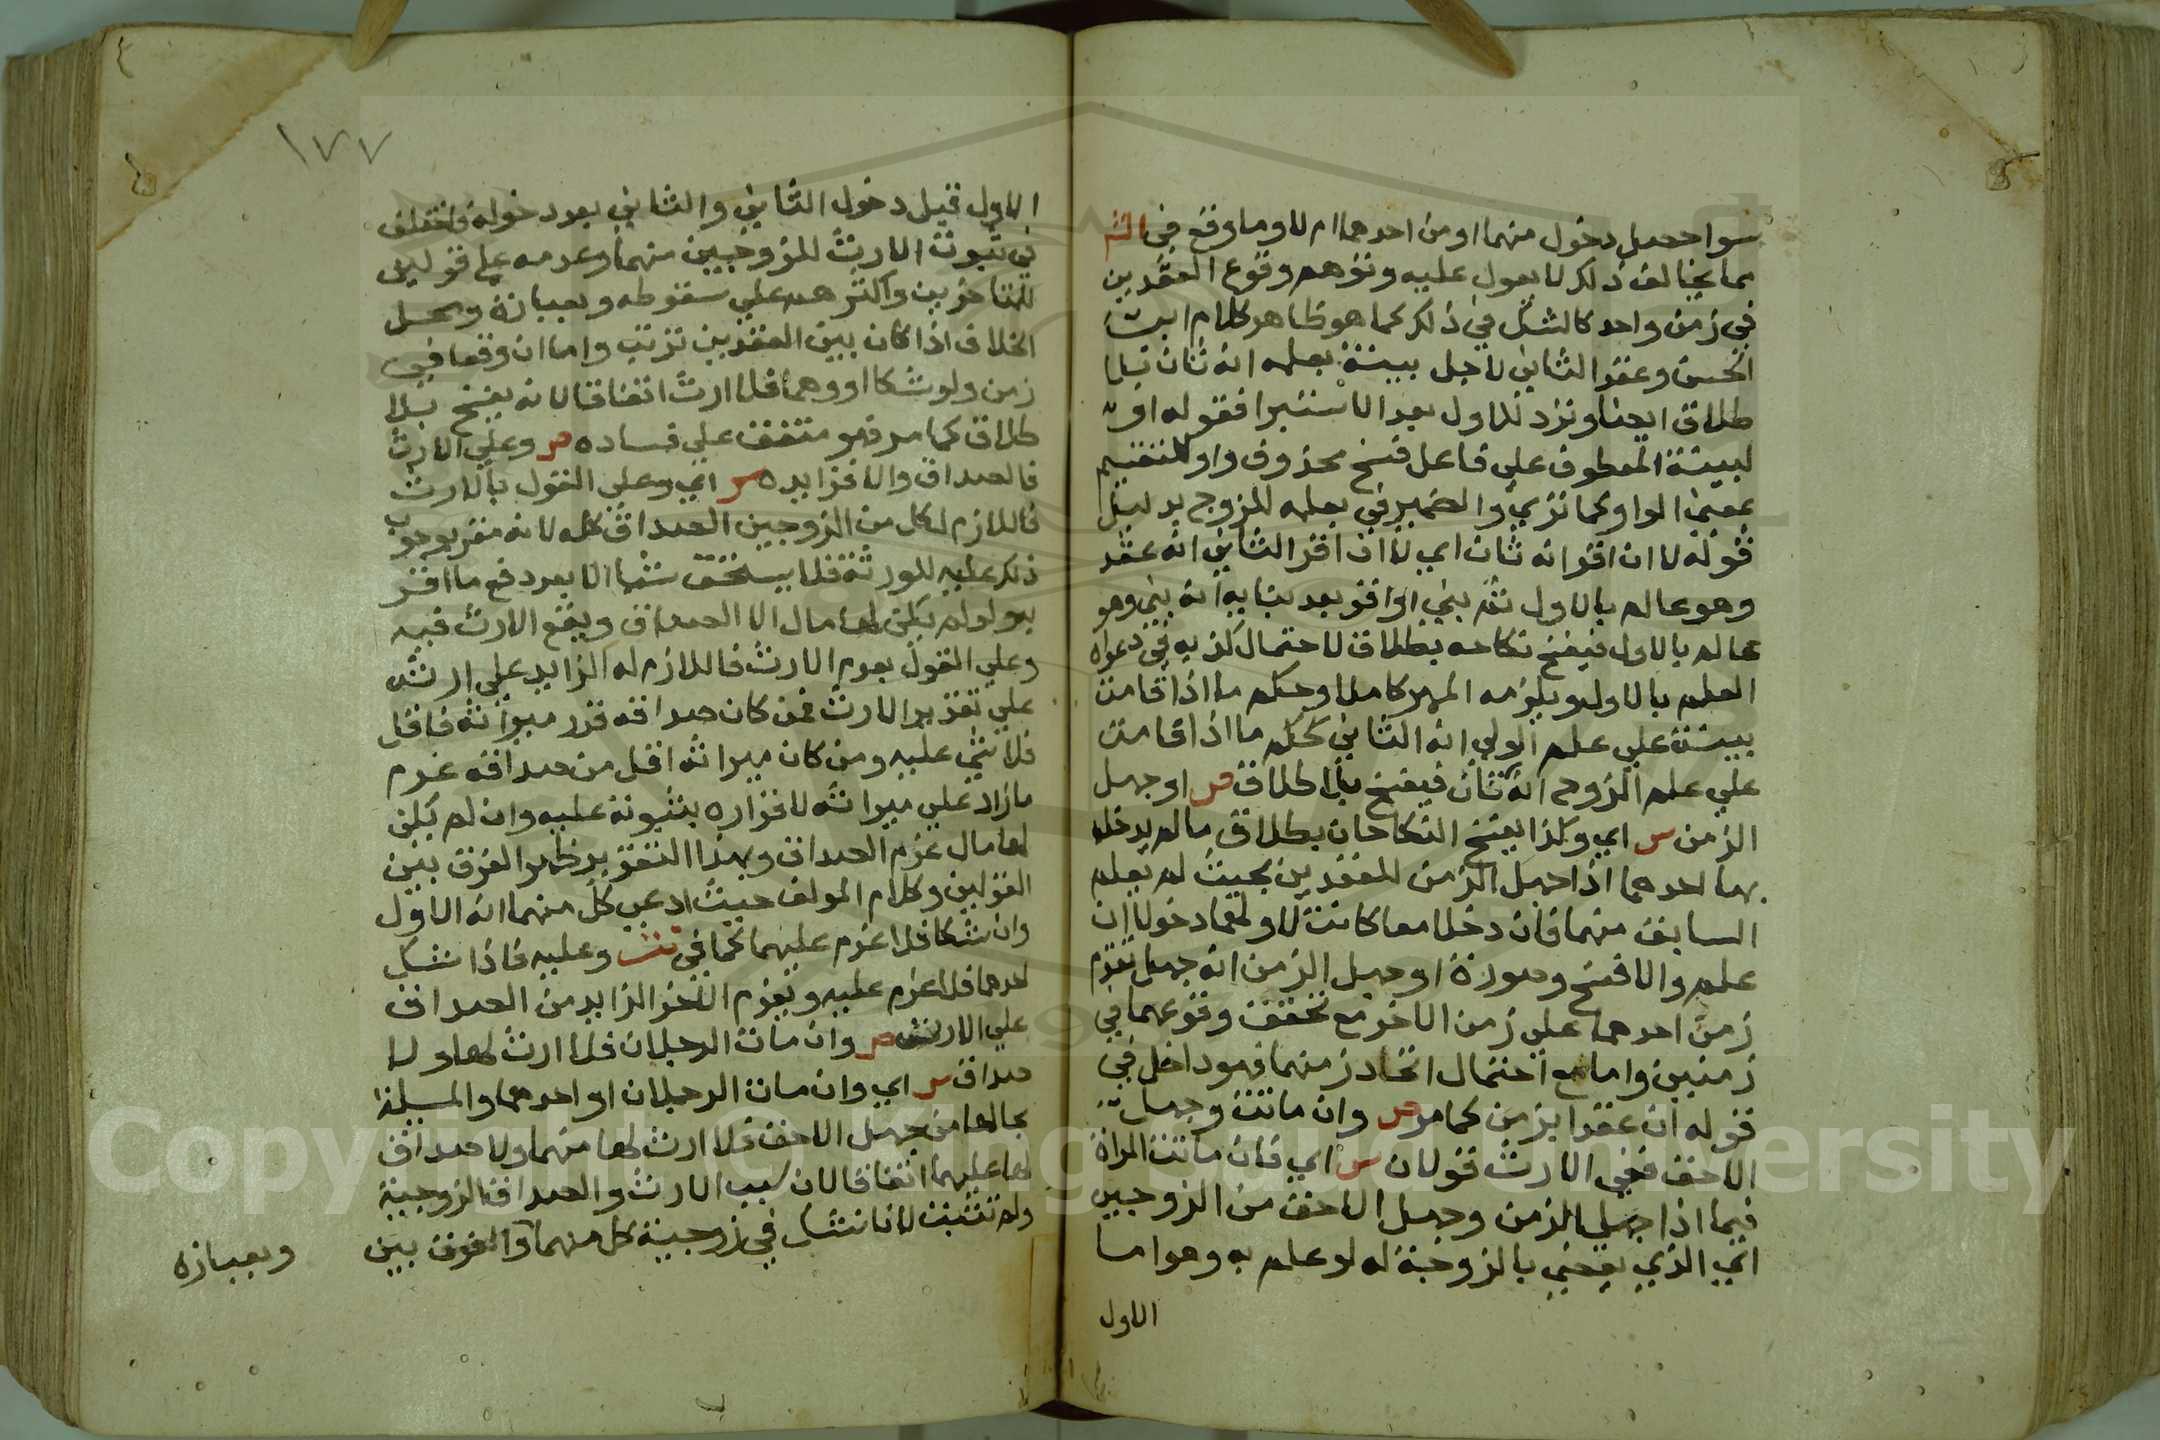 سوا حصل دخول منهما او من احدهما ام لا وما وقع في الشر
مما يخالف ذلك لا يعول عليه وتوهم وقوع العقدين
في زمن واحد كالشك في ذلك كما هو ظاهر كلام ابي
الحسن وعقد الثاني لاجل بينة بعلمه انه ثان بلا
طلاق ايضا وترد للاول بعد الاستبرا فقوله او
لبينة المعطوف علي فاعل فسخ محذوف واو للتقسيم
بمعني الواو كما تري والضمير في بعلمه للزوج بدليل
قوله لا ان اقر انه ثان اي لا ان اقر الثاني انه عقد
وهو عالم بالاول ثم بني او اقر بعد بنايه انه بني وهو
عالم بالاول فيفسخ نكاحه بطلاق لاحتمال كذبه في دعواه
العلم بالاول ويلزمه المهر كاملا وحكم ما اذا قامت
بينة علي علم الولي انه الثاني كحكم ما اذا قامت
علي علم الزوج انه ثان فيفسخ بلا طلاق ص او جهل
الزمن س اي وكذا يفسخ النكاحان بطلاق ما لم يدخل
بها احدهما اذا جهل الزمن للعقدين بحيث لم يعلم
السابق منهما فان دخلا معا كانت لاولهما دخولا ان
علم والا فسخ وصورة او جهل الزمن انه جهل تقدم
زمن احدهما علي زمن الاخر مع تحقق وقوعهما في
زمنين واما مع احتمال اتحاد زمنهما فهو داخل في
قوله ان عقدا بزمن كما مر ص وان ماتت وجهل
الاحق ففي الارث قولان س اي فان ماتت المراة
فيما اذا جهل الزمن وجهل الاحق من الزوجين
اي الذي يقضي بالزوجة له لو علم به وهو اما
الاول
١٧٧
الاول قبل دخول الثاني والثاني بعد دخوله فاختلف
في ثبوت الارث للزوجين منهما وعدمه علي قولين
للمتاخرين واكثرهم علي سقوطه وبعبارة ومحل
الخلاف اذا كان بين العقدين ترتب واما ان وقعا في
زمن ولو شكا او وهما فلا ارث اتفاقا لانه يفسخ بلا
طلاق كما مر فهو متفق علي فساده ص وعلي الارث
فالصداق والا فزايده س اي وعلي القول بالارث
فاللازم لكل من الزوجين الصداق كله لانه مقر بوجوب
ذلك عليه للورثة فلا يستحق شيا الا بعد دفع ما اقر
به ولو لم يكن لها مال الا الصداق ويقع الارث فيه
وعلي القول بعدم الارث فاللازم له الزايد علي ارثه
علي تقدير الارث فمن كان صداقه قدر ميراثه فاقل
فلا شي عليه ومن كان ميراثه اقل من صداقه غرم
ما زاد علي ميراثه لاقراره بثبوته عليه وان لم يكن
لها مال غرم الصداق وبهذا التقرير ظهر الفرق بين
القولين وكلام المولف حيث ادعي كل منهما انه الاول
وان شكا فلا غرم عليهما كما في تت وعليه فاذا شك
احدهما فلا غرم عليه ويغرم الاخر الزايد من الصداق
علي الارث ص وان مات الرجلان فلا ارث لها ولا
صداق س اي وان مات الرجلان او احدهما والمسيلة
بحالها من جهل الاحق فلا ارث لها منهما ولا صداق
لها عليهما اتفاقا لان سبب الارث والصداق الزوجية
ولم تثبت لانا نشك في زوجية كل منهما والفرق بين
وبعبارة